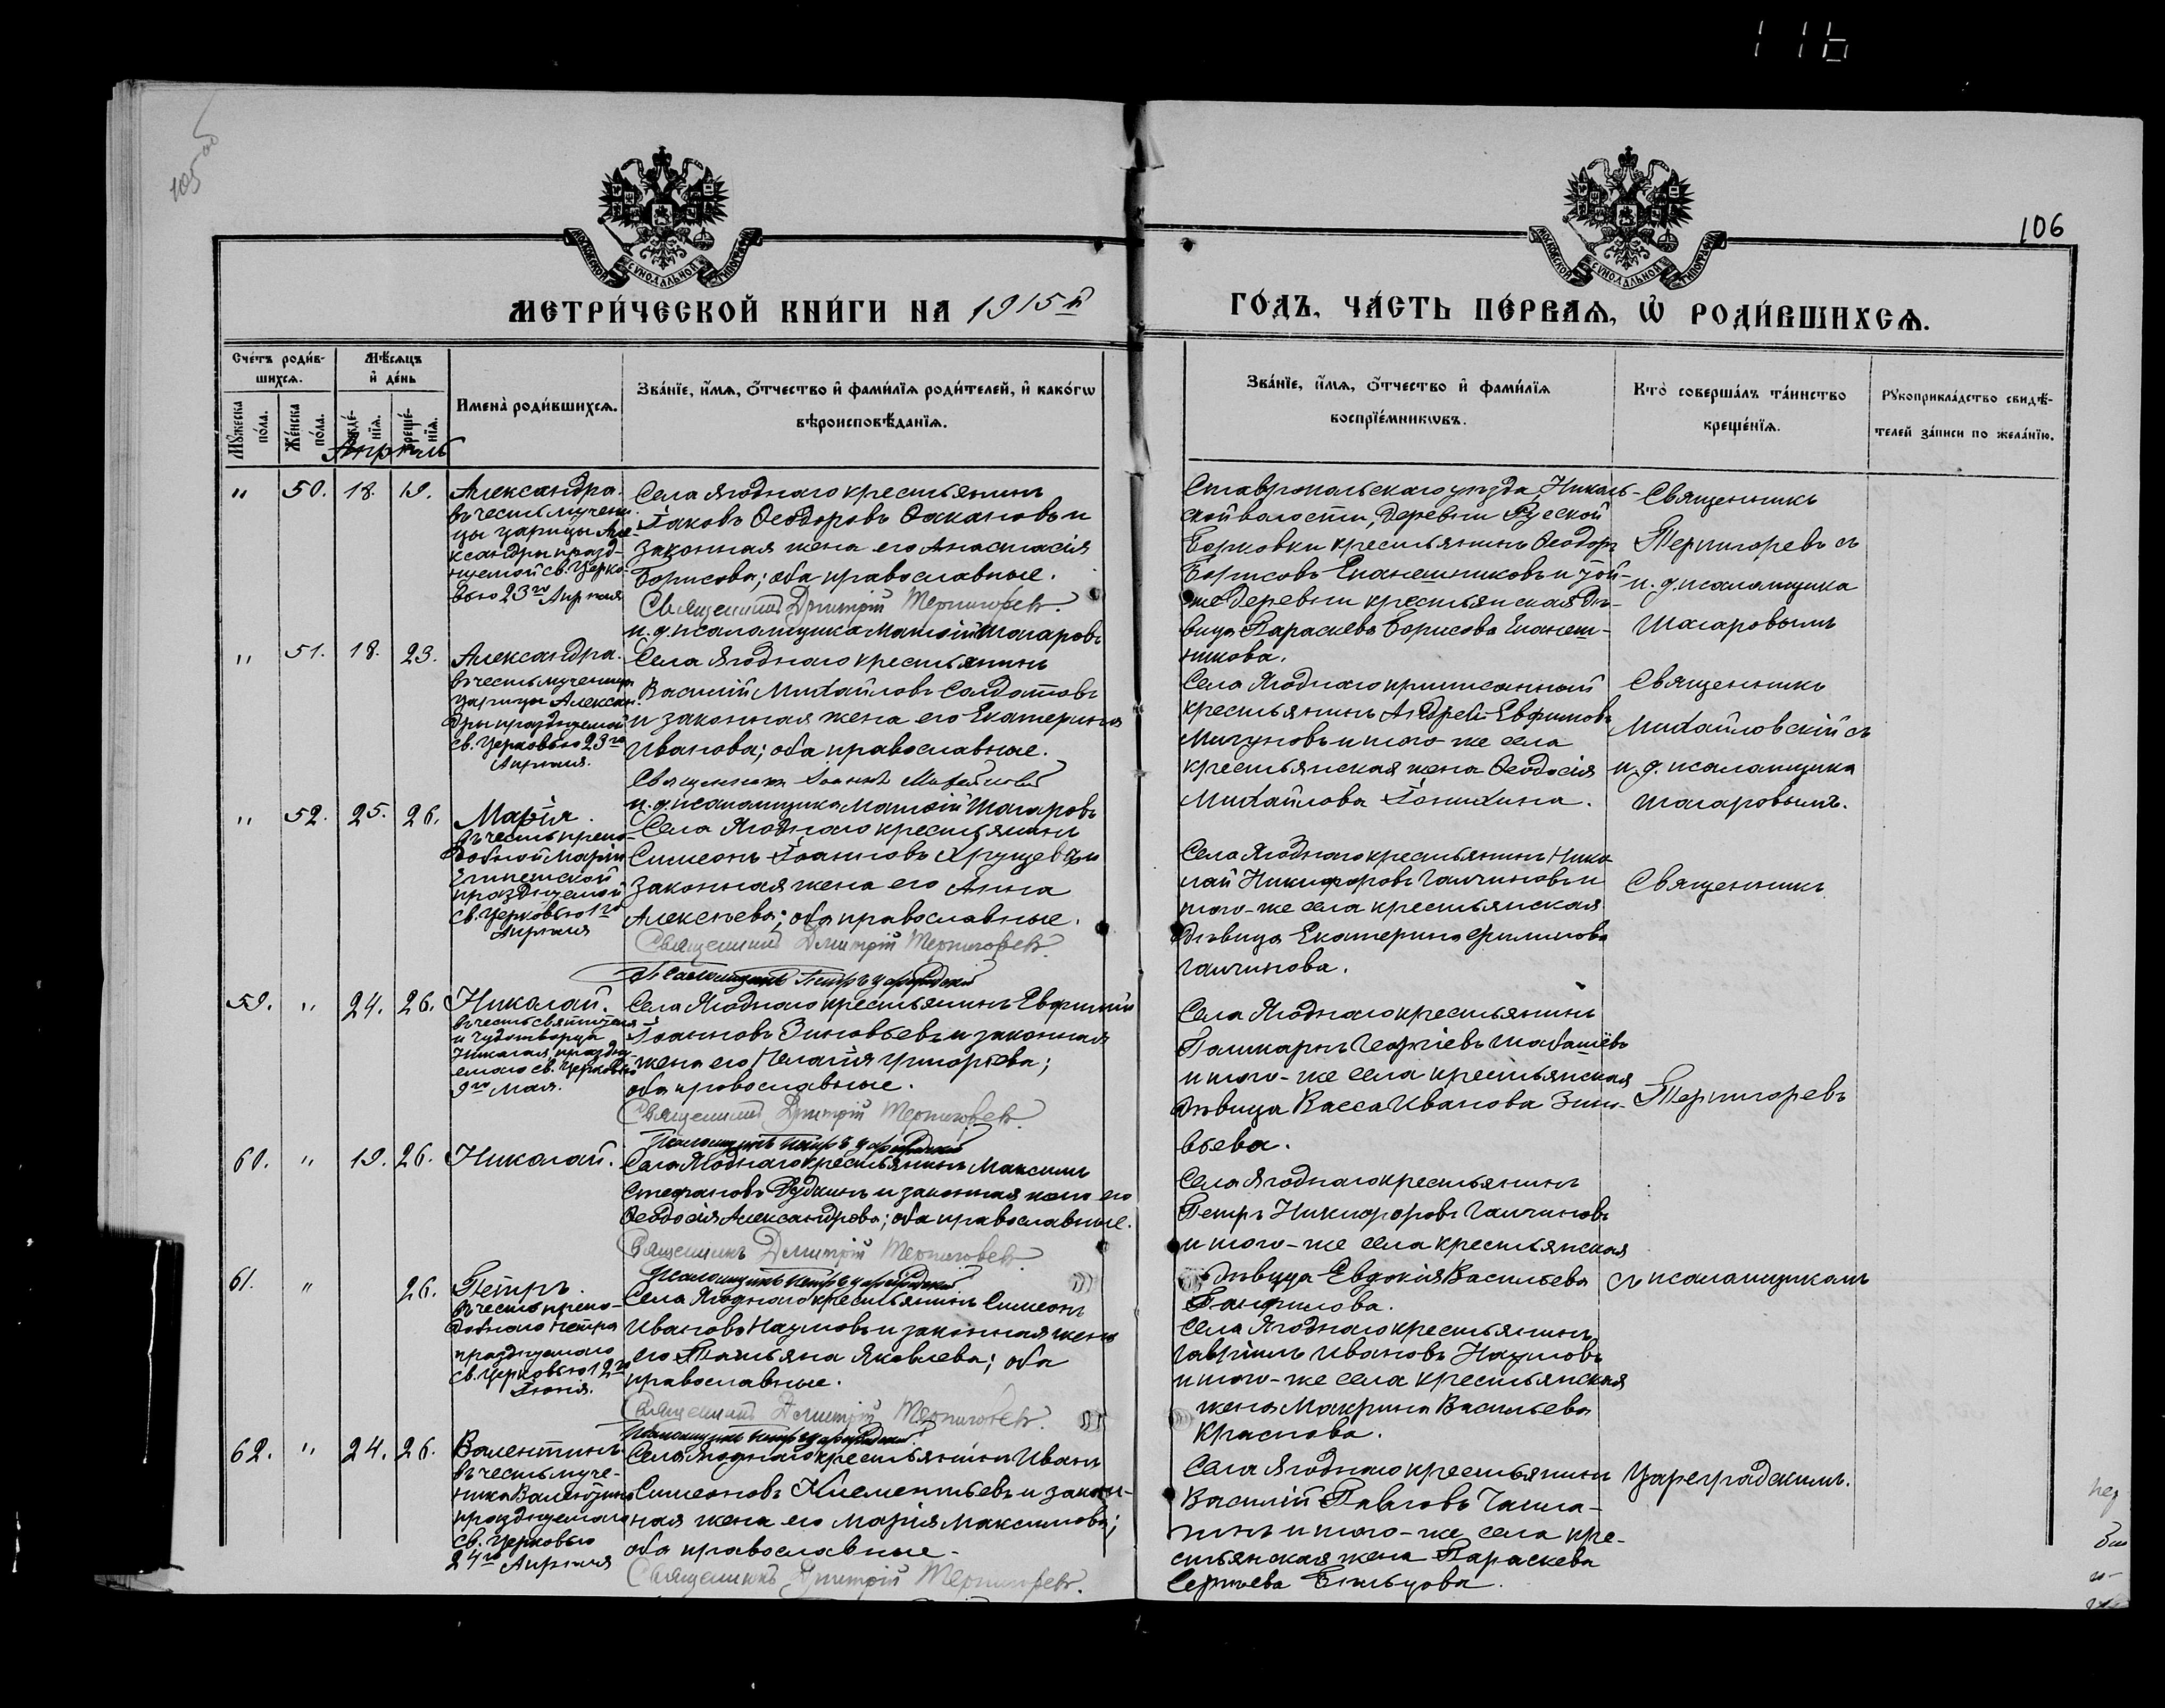 116
105 об
106
МОСКОВСКОЙ СѴНОДАЛЬНОЙ ТИПОГРАФІИ
МОСКОВСКОЙ СѴНОДАЛЬНОЙ ТИПОГРАФІИ
МЕТРИ́ЧЕСКОЙ КНИ́ГИ НА 1915й
ГО́ДЪ, ЧА́СТЬ ПЕ́РВАѦ, Ѡ РОДИ́ВШИХСѦ.
Сче́тъ роди́в-
шихсѧ.
Мѣ́сѧцъ
и҆ де́нь
Мꙋ́жеска по́ла.
Же́нска по́ла.
рожде́-
нїѧ.
креще́-
нїѧ.
Апрѣль
Имена̀ роди́вшихсѧ.
Зва́нїе, и҆́мѧ, ѻ҆́тчество и҆ фами́лїѧ роди́телей, и҆ како́гѡ
вѣроисповѣ́данїѧ.
Зва́нїе, и҆́мѧ, ѻ҆́тчество и҆ фами́лїѧ
воспрїе́мникѡвъ.
Кто̀ соверша́лъ та́инство
креще́нїѧ.
Рꙋкоприкла́дство свидѣ́-
телей за́писи по жела́нїю.
" 50. 18. 19.
Александра.
въ честь мучени-
цы царицы Але-
ксандры празд-
нуемой св. Церко-
вью 23го Апрѣля
Села Ягоднаго крестьянинъ
Іаковъ Ѳеодоровъ Ѳакановъ и
законная жена его Анастасія
Борисова; оба православные.
Священникъ Дмитрій Терпигоревъ.
и. д. псаломщика Матѳій Шагаровъ
Ставропольскаго уѣзда, Николь-
ской волости, деревни Русской
Борковки крестьянинъ Ѳеодоръ
Борисовъ Епанешниковъ и той-
же деревни крестьянская дѣ-
вица Параскева Борисова Епанеш-
никова.
Священникъ
Терпигоревъ съ
и. д. псаломщика
Шагаровымъ
" 51. 18. 23.
Александра.
въ честь мученицы
царицы Алексан-
дры празднуемой
св. Церковью 23го
Апрѣля.
Села Ягоднаго крестьянинъ
Василій Михайловъ Солдатовъ
и законная жена его Екатерина
Иванова; оба православные.
Священникъ Іоаннъ Михайловскій
и. д. псаломщика Матѳій Шагаровъ
Села Ягоднаго приписанный
крестьянинъ Андрей Евфимовъ
Мигуновъ и того-же села
крестьянская жена Ѳеодосія
Михайлова Гонихина.
Священникъ
Михайловскій съ
и. д. псаломщика
Шагаровымъ.
" 52. 25. 26.
Марія.
въ честь препо-
добной Маріи
Египетской
празднуемой
св. Церковью 1го
Апрѣля
Села Ягоднаго крестьянинъ
Симеонъ Іоанновъ Хрущевъ и
законная жена его Анна
Алексѣева; оба православные.
Священникъ Дмитрій Терпигоревъ.
Псаломщикъ Петръ Цареградскій
Села Ягоднаго крестьянинъ Нико-
лай Никифоровъ Галчиновъ и
того-же села крестьянская
дѣвица Екатерина Филипова
Галчинова.
Священникъ
59. " 24. 26.
Николай.
въ честь святителя
и чудотворца
Николая праздну-
емаго св. Церковью
9го Мая.
Села Ягоднаго крестьянинъ Евфимій
Іоанновъ Зиновьевъ и законная
жена его Пелагія Григорьева;
оба православные.
Священникъ Дмитрій Терпигоревъ.
Псаломщикъ Петръ Цареградскій
Села Ягоднаго крестьянинъ
Поликарпъ Георгіевъ Шабашёвъ
и того-же села крестьянская
дѣвица Васса Иванова Зино-
вьева.
Терпигоревъ
60. " 19. 26.
Николай.
Села Ягоднаго крестьянинъ Максимъ
Стефановъ Дудкинъ и законная жена его
Ѳеодосія Александрова; оба православные.
Священникъ Дмитрій Терпигоревъ.
Псаломщикъ Петръ Цареградскій
Села Ягоднаго крестьянинъ
Петръ Никифоровъ Галчиновъ
и того-же села крестьянская
дѣвица Евдокія Васильева
Панфилова.
съ псаломщикомъ
61. " 26.
Петръ.
въ честь препо-
добнаго Петра
празднуемаго
св. Церковью 12го
Іюня.
Села Ягоднаго крестьянинъ Симеонъ
Ивановъ Наумовъ и законная жена
его Татьяна Яковлева; оба
православные.
Священникъ Дмитрій Терпигоревъ.
Псаломщикъ Петръ Цареградскій
Села Ягоднаго крестьянинъ
Гавріилъ Ивановъ Наумовъ
и того-же села крестьянская
жена Макрина Васильева
Краснова.
62. " 24. 26.
Валентинъ
въ честь муче-
ника Валентина
празднуемаго
св. Церковью
24го Апрѣля
Села Ягоднаго крестьянинъ Иванъ
Симеоновъ Климентьевъ и закон-
ная жена его Марія Максимова;
оба православные.
Священникъ Дмитрій Терпигоревъ.
Села Ягоднаго крестьянинъ
Василій Павловъ
и того-же села кре-
стьянская жена Параскева
Сергѣева
Цареградскимъ.